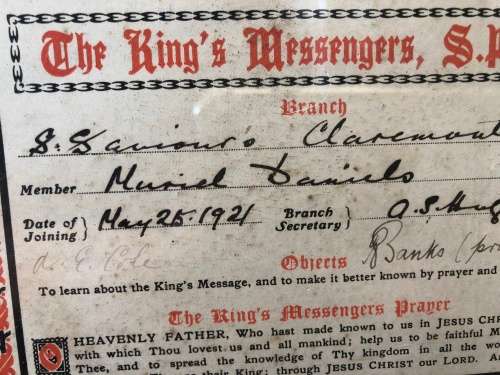 The King's Messengers, S.P
Branch
S. Saviour's Claremont
Member Muriel Daniels
Date of Joining} May 25. 1921 Branch Secretary} A.S. Hug
Objects Banks (pr
To learn about the King's Message, and to make it better known by prayer and
The King's Messengers Prayer
O HEAVENLY FATHER, Who hast made known to us in JESUS CHR
with which Thou lovest us and all mankind; help us to be faithful M
Thee, and to spread the knowledge of Thy kingdom in all the wo
their King; through JESUS CHRIST our LORD. A